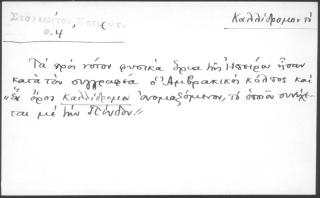 Καλλίδρομον τὸ
0.4
Τὰ πρὸς νότον φυσικὰ ὅρια τῆς Ἠπείρου ἦσαν
κατὰ τὸν συγγραφέα ὁ Ἀμβρακικὸς κόλπος καὶ
ὄρος Καλλίδρομον ὀνομαζόμενον, τὸ ὁποῖον συνέχε-
ται μὲ τὴν Πίνδον."